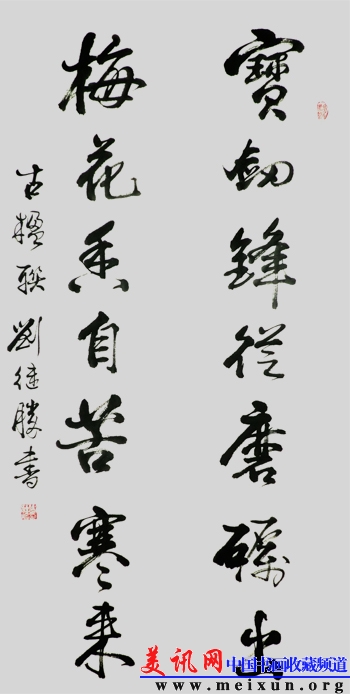 寶劍鋒從磨礪出
梅花香自苦寒来
古楹联 劉继勝書
美讯网 中国书画收藏频道
www.meixun.org